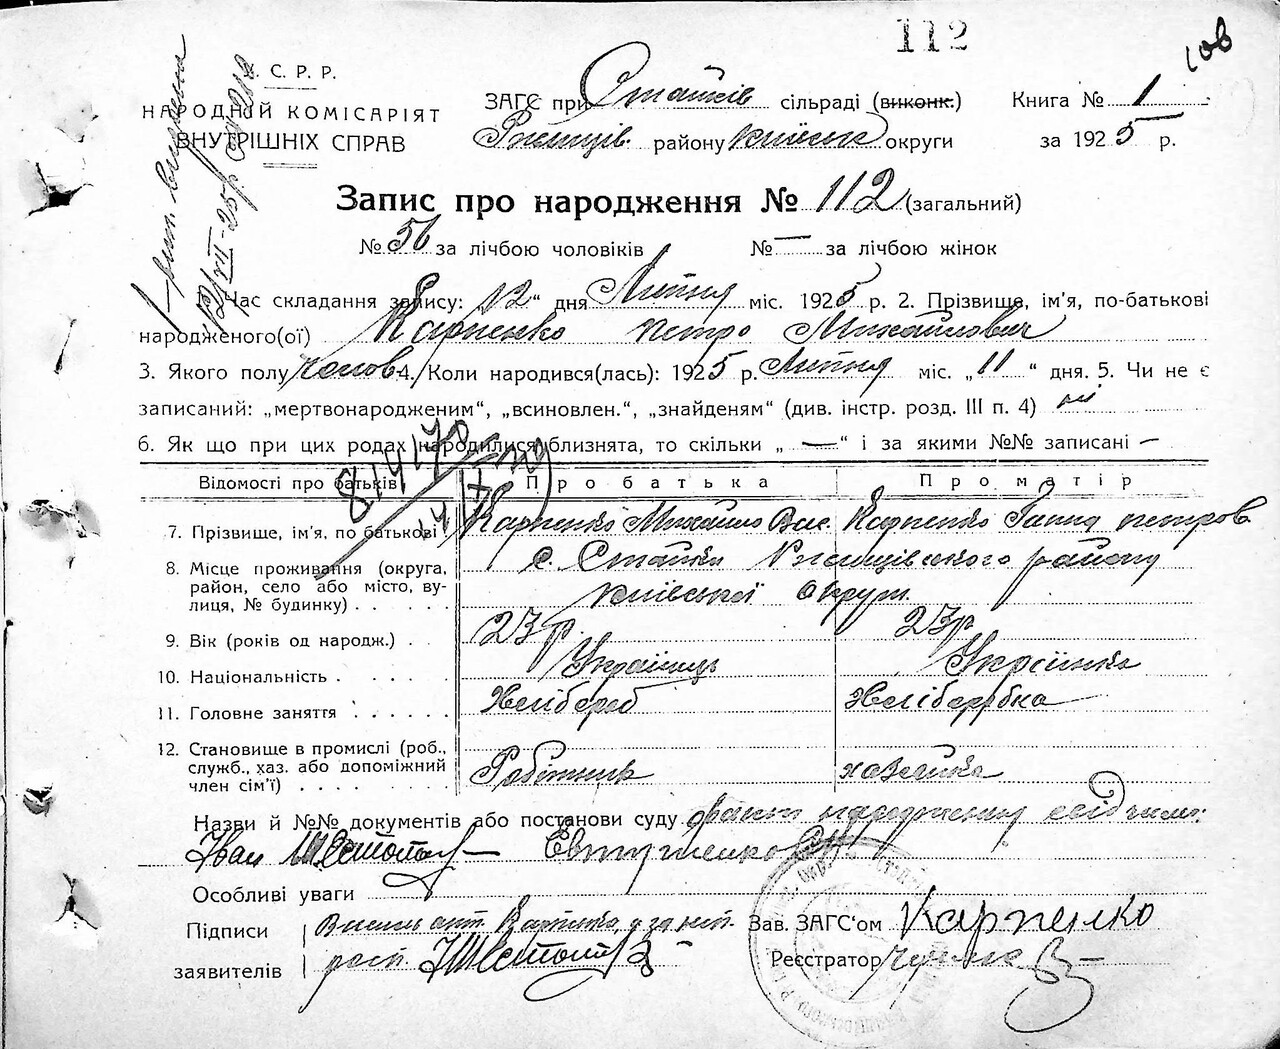 112
106
С. Р. Р.
НАРОДНІЙ КОМІСАРІЯТ
ВНУТРІШНІХ СПРАВ
ЗАГС при Стайків сільраді (виконк.)
Ржищів. району Київськ округи
Книга № 1
за 1925 р.
Запис про народження № 112 (загальний)
№ 56 за лічбою чоловіків № — за лічбою жінок
Час складання запису: „12“ дня Липня міс. 1925 р. 2. Прізвище, ім'я, по-батькові
народженого(ої) Карпенко Петро Михайлович
3. Якого полу чолов. 4. Коли народився(лась): 1925 р. Липня міс. „11“ дня. 5. Чи не є
записаний: „мертвонародженим“, „всиновлен.“, „знайденям“ (див. інстр. розд. III п. 4) ні
6. Як що при цих родах народилися близнята, то скільки „—“ і за якими №№ записані —
Відомості про батьків Про батька Про матір
7. Прізвище, ім'я, по батькові Карпенко Михайло Вас. Карпенко Ганна Петров
8. Місце проживання (округа, район, село або місто, вулиця, № будинку) с. Стайки Ржищівського району
Київської округи
9. Вік (років од народж.) 23 р. 23 р.
10. Національність Українець Українка
11. Головне заняття Хлібороб Хліборобка
12. Становище в промислі (роб., служб., хаз. або допоміжний член сім'ї) Робітник хазяйка
Назви й №№ документів або постанови суду факт народження свідчимо:
Іван Шестопал Евтушенко
Особливі уваги
Підписи
заявителів
Зав. ЗАГС'ом Карпенко
Реєстратор